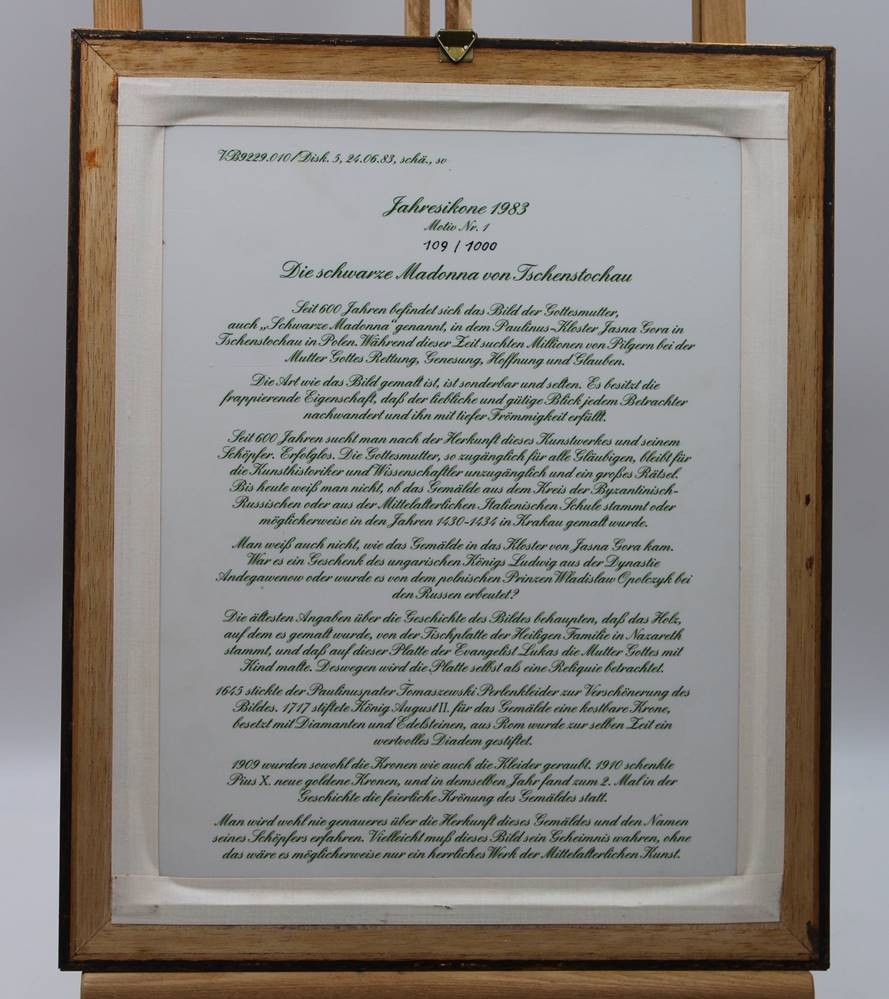 VB9229.010/Disk. 5, 24.06.83, schä., so
Jahresikone 1983
Motiv Nr. 1
109 / 1000
Die schwarze Madonna von Tschenstochau
Seit 600 Jahren befindet sich das Bild der Gottesmutter,
auch „Schwarze Madonna“ genannt, in dem Paulinus-Kloster Jasna Gora in
Tschenstochau in Polen. Während dieser Zeit suchten Millionen von Pilgern bei der
Mutter Gottes Rettung, Genesung, Hoffnung und Glauben.
Die Art wie das Bild gemalt ist, ist sonderbar und selten. Es besitzt die
frappierende Eigenschaft, daß der liebliche und gütige Blick jedem Betrachter
nachwandert und ihn mit tiefer Frömmigkeit erfüllt.
Seit 600 Jahren sucht man nach der Herkunft dieses Kunstwerkes und seinem
Schöpfer. Erfolglos. Die Gottesmutter, so zugänglich für alle Gläubigen, bleibt für
die Kunsthistoriker und Wissenschaftler unzugänglich und ein großes Rätsel.
Bis heute weiß man nicht, ob das Gemälde aus dem Kreis der Byzantinisch-
Russischen oder aus der Mittelalterlichen Italienischen Schule stammt oder
möglicherweise in den Jahren 1430-1434 in Krakau gemalt wurde.
Man weiß auch nicht, wie das Gemälde in das Kloster von Jasna Gora kam.
War es ein Geschenk des ungarischen Königs Ludwig aus der Dynastie
Andegawenow oder wurde es von dem polnischen Prinzen Wladislaw Opolczyk bei
den Russen erbeutet?
Die ältesten Angaben über die Geschichte des Bildes behaupten, daß das Holz,
auf dem es gemalt wurde, von der Tischplatte der Heiligen Familie in Nazareth
stammt, und daß auf dieser Platte der Evangelist Lukas die Mutter Gottes mit
Kind malte. Deswegen wird die Platte selbst als eine Reliquie betrachtet.
1645 stickte der Paulinuspater Tomaszewski Perlenkleider zur Verschönerung des
Bildes. 1717 stiftete König August II. für das Gemälde eine kostbare Krone,
besetzt mit Diamanten und Edelsteinen, aus Rom wurde zur selben Zeit ein
wertvolles Diadem gestiftet.
1909 wurden sowohl die Kronen wie auch die Kleider geraubt. 1910 schenkte
Pius X. neue goldene Kronen, und in demselben Jahr fand zum 2. Mal in der
Geschichte die feierliche Krönung des Gemäldes statt.
Man wird wohl nie genaueres über die Herkunft dieses Gemäldes und den Namen
seines Schöpfers erfahren. Vielleicht muß dieses Bild sein Geheimnis wahren, ohne
das wäre es möglicherweise nur ein herrliches Werk der Mittelalterlichen Kunst.